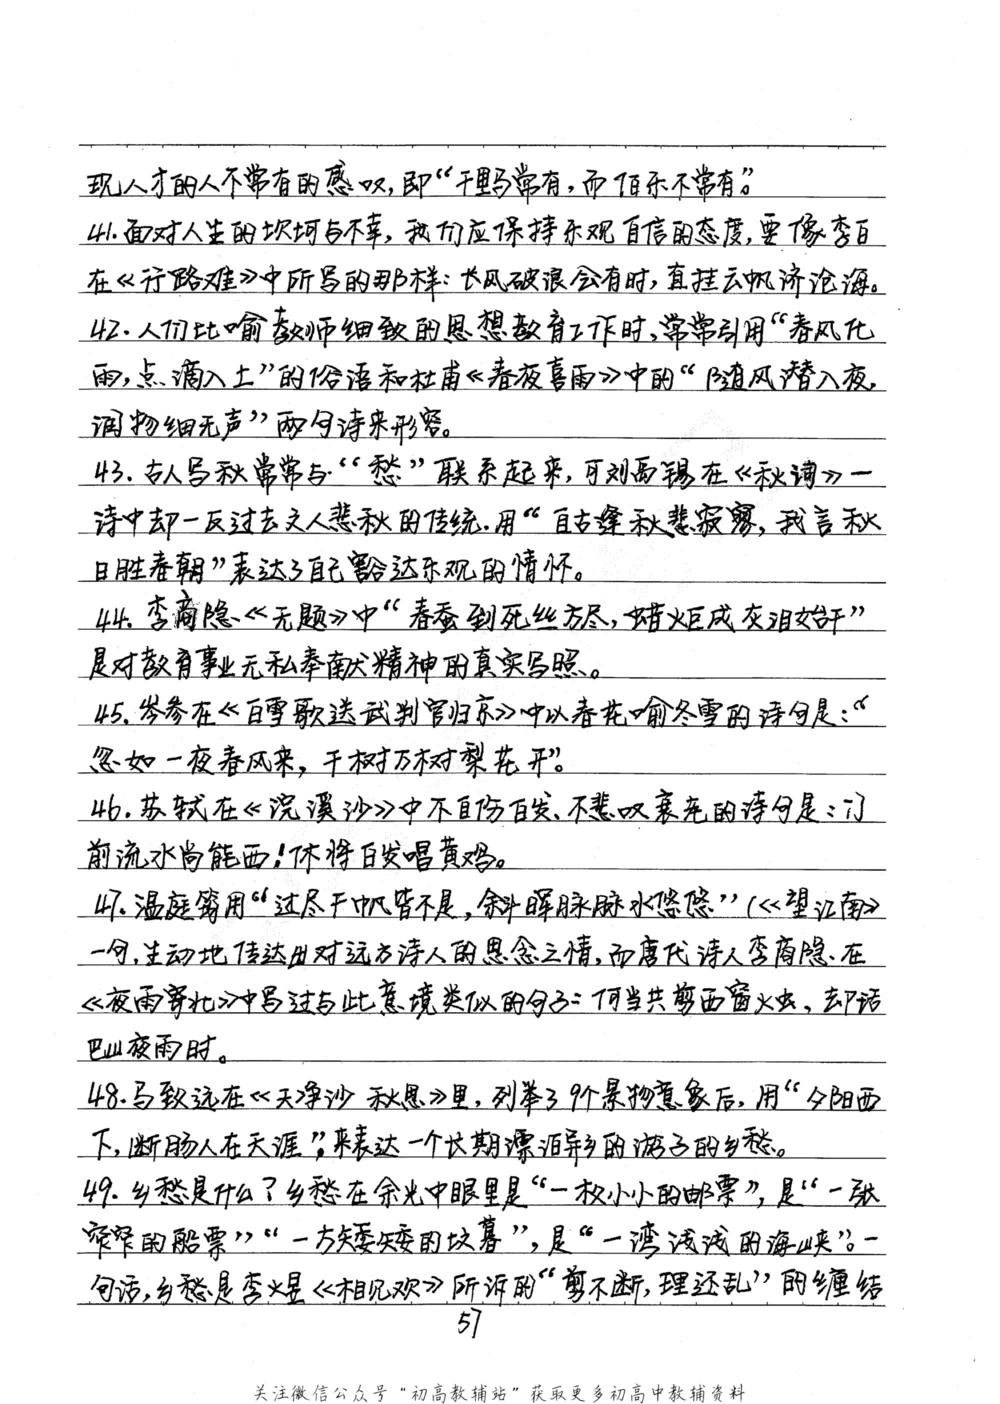 现人才的人不常有的感叹,即“千里马常有,而伯乐不常有”。
41.面对人生的坎坷与不幸,我们应保持乐观自信的态度,要像李白
在《行路难》中所写的那样:长风破浪会有时,直挂云帆济沧海。
42.人们比喻教师细致的思想教育工作时,常常引用“春风化
雨,点滴入土”的俗语和杜甫《春夜喜雨》中的“随风潜入夜,
润物细无声”两句诗来形容。
43.古人写秋常常与“愁”联系起来,可刘禹锡在《秋词》一
诗中却一反过去文人悲秋的传统.用“自古逢秋悲寂寥,我言秋
日胜春朝”表达了自己豁达乐观的情怀。
44.李商隐《无题》中“春蚕到死丝方尽,蜡炬成灰泪始干”
是对教育事业无私奉献精神的真实写照。
45.岑参在《白雪歌送武判官归京》中以春花喻冬雪的诗句是:“
忽如一夜春风来,千树万树梨花开”。
46.苏轼在《浣溪沙》中不自伤白发、不悲叹衰老的诗句是:门
前流水尚能西!休将白发唱黄鸡。
47.温庭筠用“过尽千帆皆不是,斜晖脉脉水悠悠”(《望江南》
一句,生动地传达出对远方诗人的思念之情,而唐代诗人李商隐在
《夜雨寄北》中写过与此意境类似的句子:何当共剪西窗烛,却话
巴山夜雨时。
48.马致远在《天净沙 秋思》里,列举了9个景物意象后,用“夕阳西
下,断肠人在天涯”,来表达一个长期漂泊异乡的游子的乡愁。
49.乡愁是什么?乡愁在余光中眼里是“一枚小小的邮票”,是“一张
窄窄的船票”“一方矮矮的坟暮”,是“一湾浅浅的海峡”。一
句话,乡愁是李煜《相见欢》所诉的“剪不断,理还乱”的缠结
57
关注微信公众号“初高教辅站”获取更多初高中教辅资料